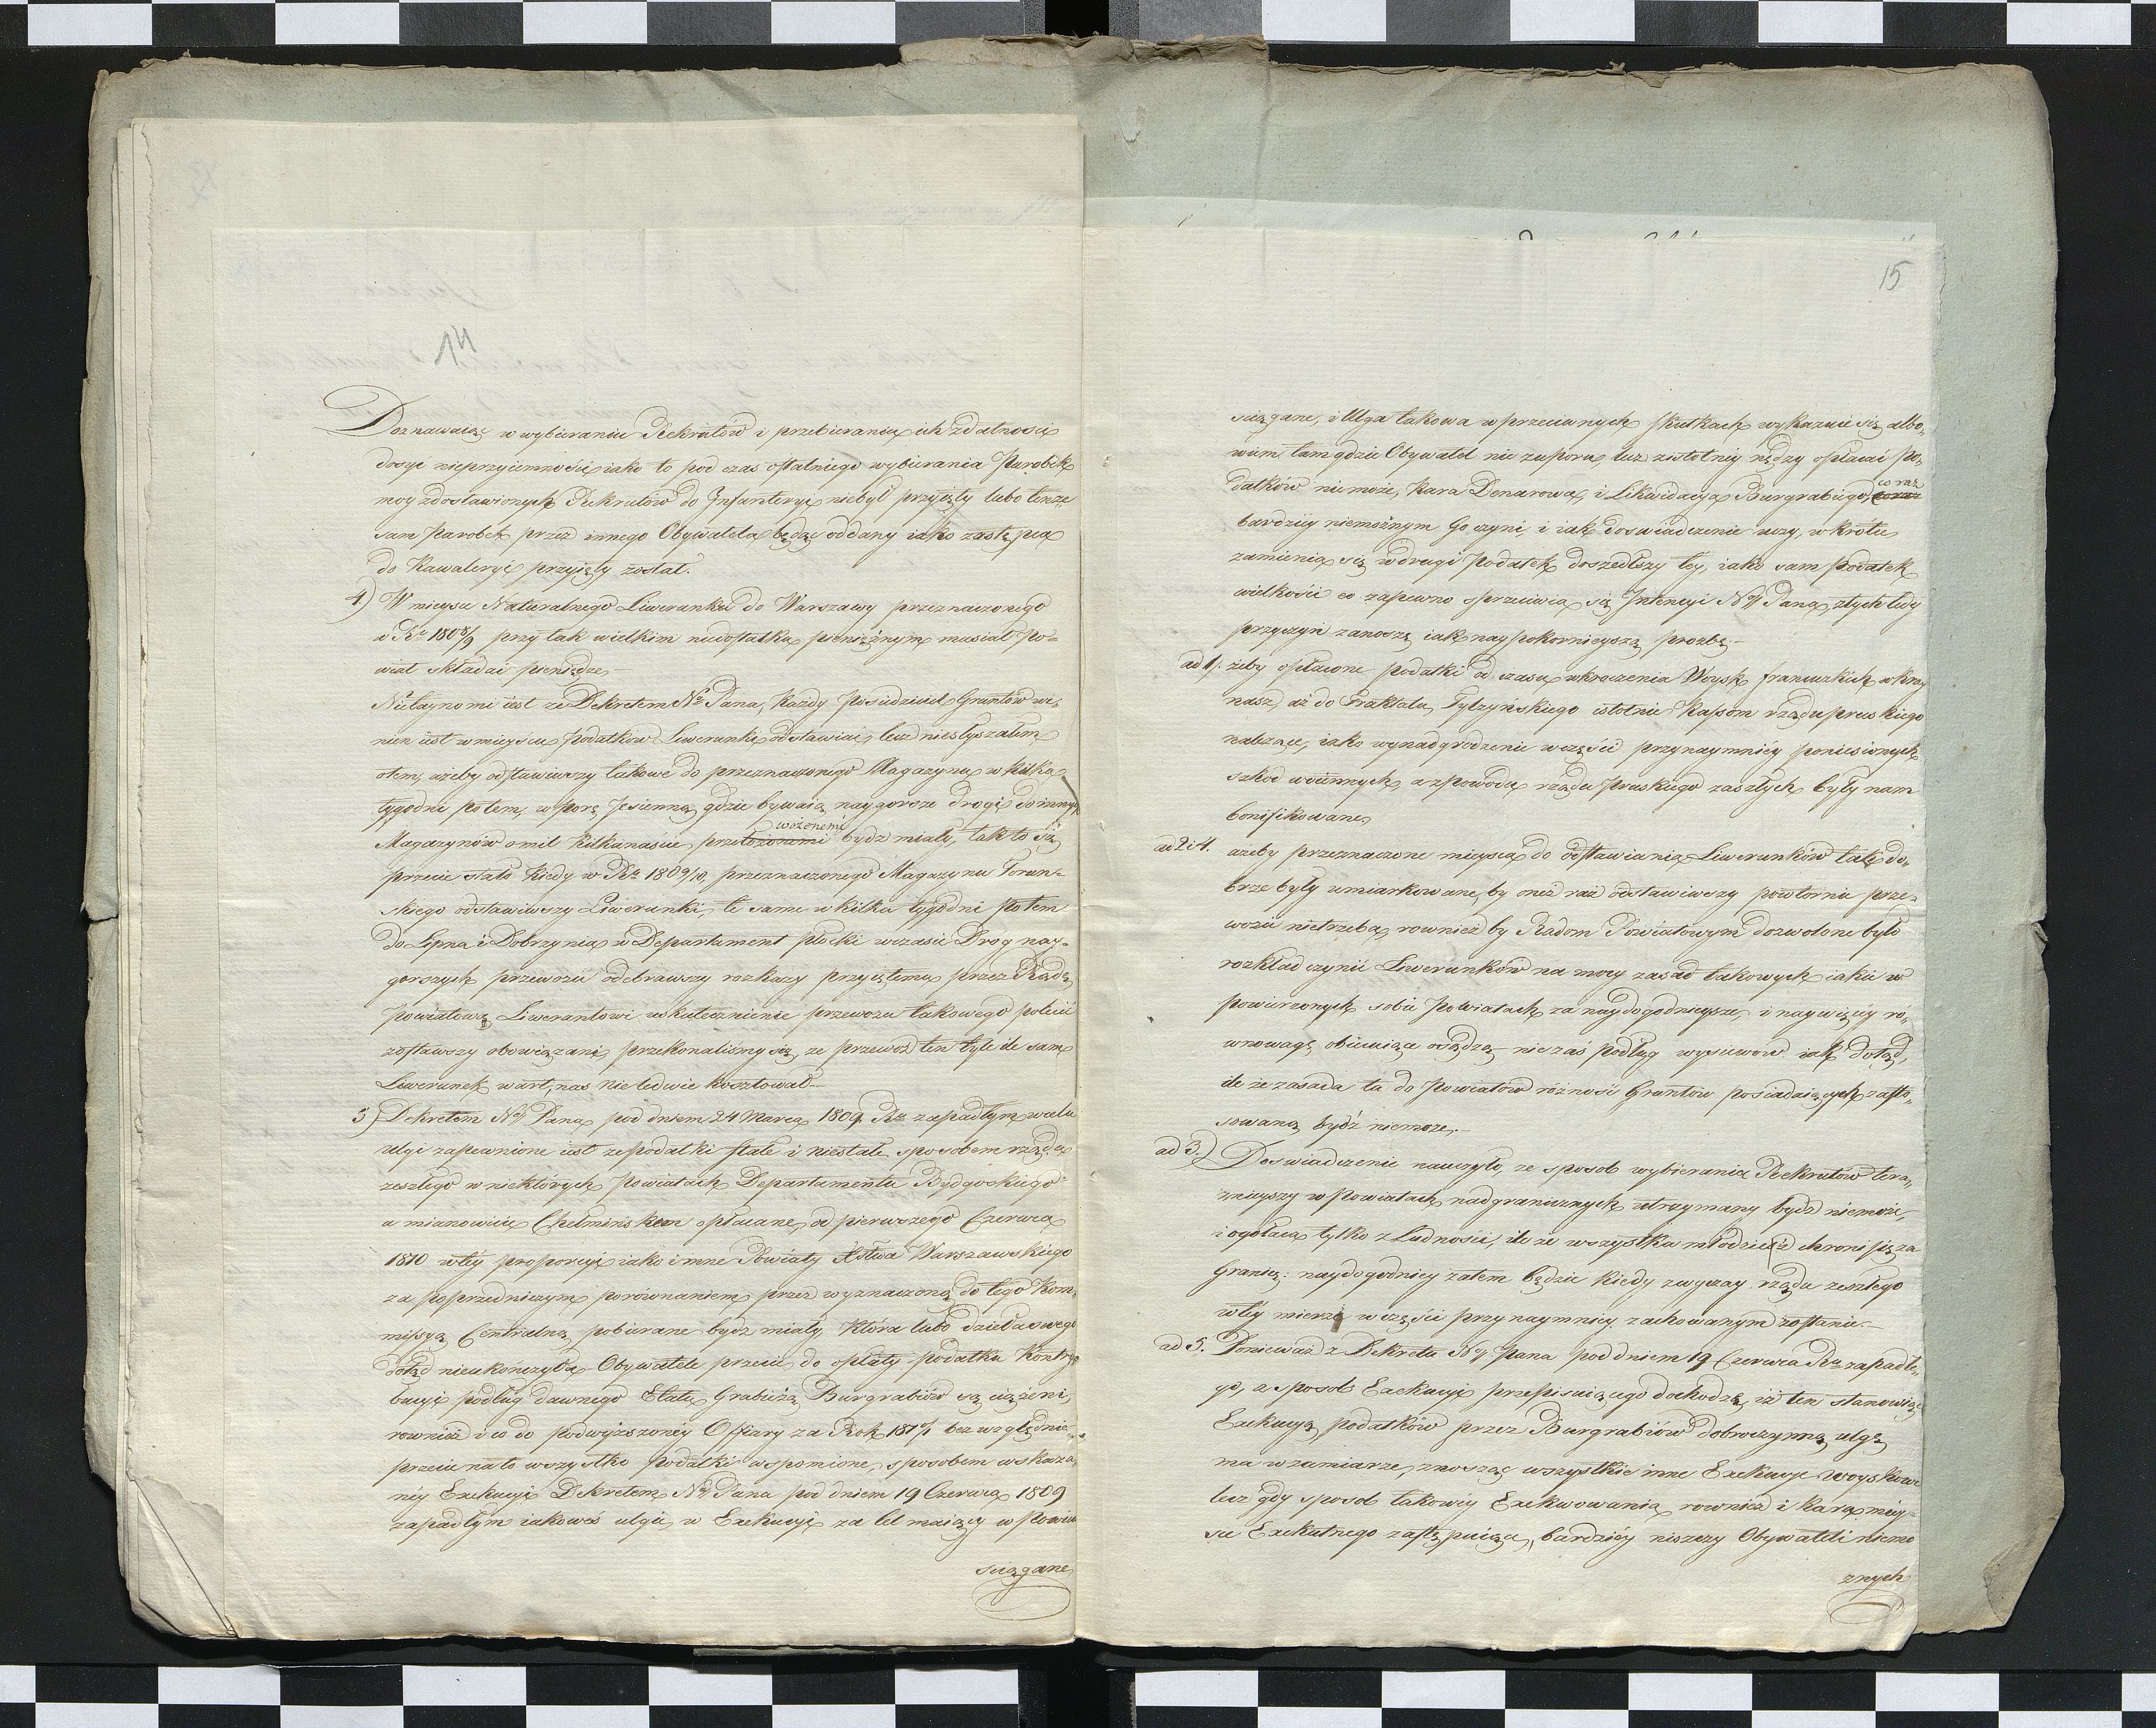 14
Doznawaiąc w wybieraniu Rekrutów i przebierania ich zdatności
dosyć nieprzyiemności iako to pod czas ostatniego wybierania Parobek
moy zdostawionych Rekrutów do Infanteryi niebył przyięty lubo tenże
sam Parobek przez innego Obywatela będąc oddany iako zastępca
do Kawaleryi przyięty został.
4) W mieyscu Naturalnego Liwerunku do Warszawy przeznaczonego
w Rku 1808/9 przy tak wielkim niedostatku pieniężnym musiał Po=
wiat składać pieniądze
Nietayno mi iest że Dekretem Nº Pana, każdy Posiedziciel Gruntów wi=
nien iest w mieyscu Podatków Liwerunki odstawiać, lecz niesłyszałem
otem, ażeby odstawiwszy takowe do przeznaczonego Magazynu w kilka
tygodni potem, w porę Jesienną gdzie bywaią naygorsze drogi do innych
wożonemi
Magazynów o mil kilkanaście przełożonemi bydź miały, tak to się
przecie stało kiedy w Rku 1809/10, przeznaczonego Magazynu Torun=
skiego odstawiwszy Liwerunki, te same w kilku tygodni potem
do Lipna i Dobrzynia w Departament Płocki wczasie Dróg nay=
gorszych przewozić odebrawszy rozkazy przyiętemu przez Radę
Powiatową Liwerantowi uskutecznienie przewozu takowego polecić
zostawszy obowiązani, przekonaliśmy się, że przewóz ten tyle ile sam
Liwerunek wart, nas nieledwie kosztował
5) Dekretem Nº Pana pod dniem 24 Marca 1809 Rku zapadłym wcelu
ulgi zapewnione iest że podatki stałe i niestałe sposobem rządu
zeszłego w niektórych Powiatach Departamentu Bydgoskiego
a mianowicie Chełmińskem opłacane, od pierwszego Czerwca
1810 w tey proporcyi iako i inne Powiaty Xstwa Warszawskiego
za poprzedniczym porównaniem przez wyznaczoną do tego Kom=
missyą Centralną pobierane bydź miały, która lubo dzieła swego
dotąd nieukończyła Obywatele przecie do opłaty podatku Kontry=
bucyi podług dawnego Etatu Grabieżą Burgrabiów są ciążeni,
rownież i co do podwyższoney Offiary za Rok 1810/11 bez względnie
przecie na to wszystko podatki wspomione, sposobem wskaza=
ney Exekucyi Dekretem Nº Pana pod dniem 19 Czerwca 1809
zapadłym iakowéś ulgi w Exekucyi za cel maiący w powie
sciągane
15
sciągane, i Ulga takowa w przeciwnych skutkach wykazuie się, albo=
wiem tam gdzie Obywatel nie zuporu, lecz zistotney nędzy opłacić Po=
co raz
datków niemoże, kara Denarowa, i Likwidacya Burgrabiego, coraz
bardziey niemożnym Go czyni, i iak doswiadczenie uczy, w krótce
zamienia się wdrugi Podatek doszedłszy tey, iako sam podatek
wielkości co zapewno sprzeciwia się Intencyi Nº Pana, ztych tedy
przyczyn zanoszę iak naypokornieyszą prozbę
ad 1. żeby opłacone podatki od czasu wkroczenia Woysk francuzkich w kray
nasz aż do Traktatu Tylzyńskiego istotnie Kassom rządu pruskiego
nalezące, iako wynadgrodzenie wczęści przynaymniey poniesionych
szkod woiennych, a zpowodu rządu Pruskiego zaszłych były nam
bonifikowane,
ad 2 i 4. ażeby przeznaczone mieysca do odstawiania Liwerunków tak do=
brze były umiarkowane, by oneż raz odstawiwszy powtornie prze=
wozić nietrzeba, rownież by Radom Powiatowym dozwolone było
rozkład czynić Liwerunków na mocy zasad takowych iakie w
powierzonych sobie Powiatach za naydogodnieysze, i naywięcey ró=
wnowagę obiecuiące osądzą, nie zaś podług wysiewów iak dotąd,
ile że zasada ta do Powiatów różność Gruntów posiadaiących zasto=
sowana bydź niemoże,
ad 3.) Doswiadczenie nauczyło, że sposob wybierania Rekrutów tera=
znieyszy w Powiatach nadgranicznych utrzymany bydź niemoże,
i ogołaca tylko z Ludności, ile że wszystka młodzież chroni się za
Granicę: naydogodniey zatem będzie kiedy zwyczay rządu zeszłego
w tey mierze wczęści przynaymniey zachowanym zostanie.
ad 5. Ponieważ z Dekretu Nº Pana pod dniem 19 Czerwca Rku zapadłe=
go, a sposob Exekucyi przepisuiącego dochodzę, iż ten stanowiąc
Exekucyą podatków przez Burgrabiów dobroczynną ulgę
ma wzamiarze, znosząc wszystkie inne Exekucye Woyskowe
lecz gdy sposob takowey Exekwowania, rownież i kara miey=
sce Exekutnego zastępuiąca, bardziey niszczy Obywateli niemo
znych